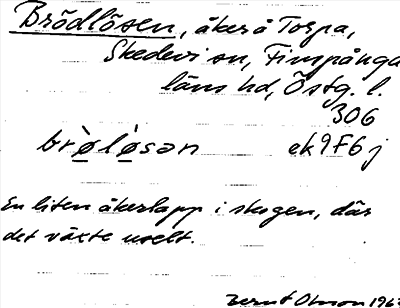 Brödlösen, åker å Torpa,
Skedevi sn, Finspånga
läns hd, Östg. l.
306
brø̀lø̀sən ek 9F6j
En liten åkerlapp i skogen, där
det växte uselt.
Bernt Olsson 196